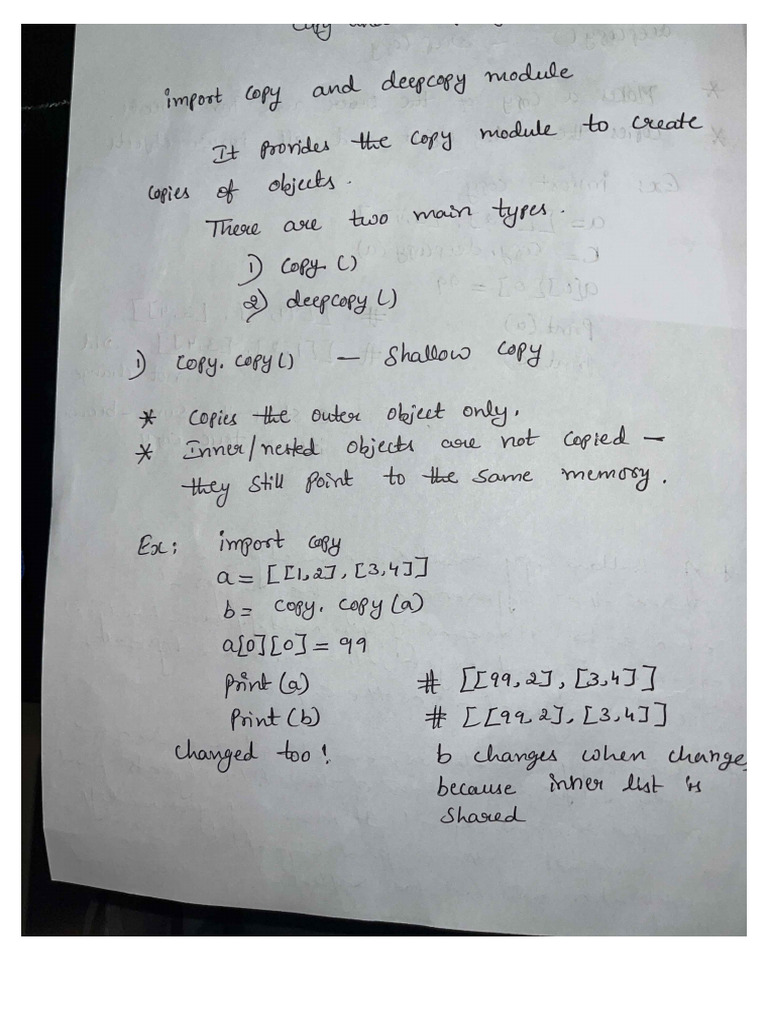 import copy and deepcopy module
It provides the copy module to create
copies of objects.
There are two main types.
1) copy ()
2) deepcopy ()
1) copy. copy () — Shallow copy
* copies the outer object only.
* Inner/nested objects are not copied —
they still point to the same memory.
Ex: import copy
a = [[1,2], [3,4]]
b = copy. copy (a)
a[0][0] = 99
print (a) # [[99,2], [3,4]]
print (b) # [[99,2], [3,4]]
changed too! b changes when change
because inner list is
shared